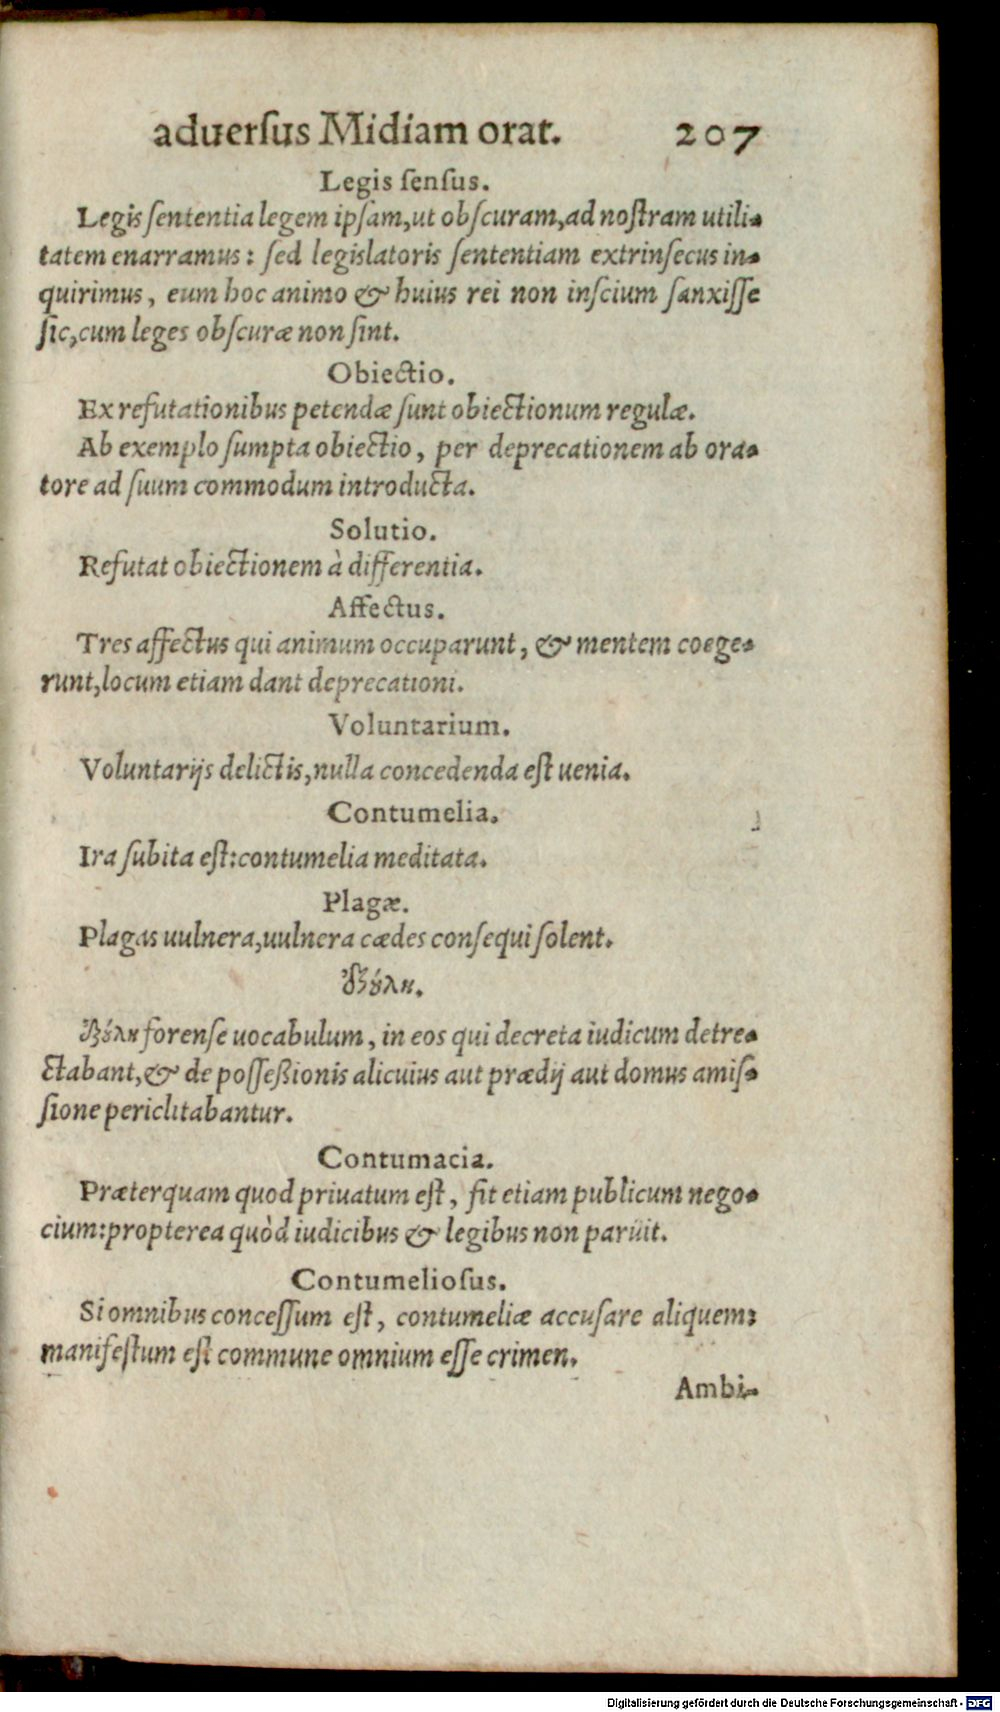 aduersus Midiam orat. 207
Legis sensus.
Legis sententia legem ipsam, ut obscuram, ad nostram utili-
tatem enarramus: sed legislatoris sententiam extrinsecus in-
quirimus, eum hoc animo & huius rei non inscium sanxisse
sic, cum leges obscuræ non sint.
Obiectio.
Ex refutationibus petendæ sunt obiectionum regulæ.
Ab exemplo sumpta obiectio, per deprecationem ab ora-
tore ad suum commodum introducta.
Solutio.
Refutat obiectionem à differentia.
Affectus.
Tres affectus qui animum occuparunt, & mentem coege-
runt, locum etiam dant deprecationi.
Voluntarium.
Voluntarijs delictis, nulla concedenda est uenia.
Contumelia.
Ira subita est: contumelia meditata.
Plagæ.
Plagas uulnera, uulnera cædes consequi solent.
ἐξούλη.
ἐξούλη forense uocabulum, in eos qui decreta iudicum detre-
ctabant, & de possessionis alicuius aut prædij aut domus amis-
sione periclitabantur.
Contumacia.
Præterquam quod priuatum est, fit etiam publicum nego-
cium: propterea quòd iudicibus & legibus non paruit.
Contumeliosus.
Si omnibus concessum est, contumeliæ accusare aliquem:
manifestum est commune omnium esse crimen.
Ambi-
Digitalisierung gefördert durch die Deutsche Forschungsgemeinschaft - DFG